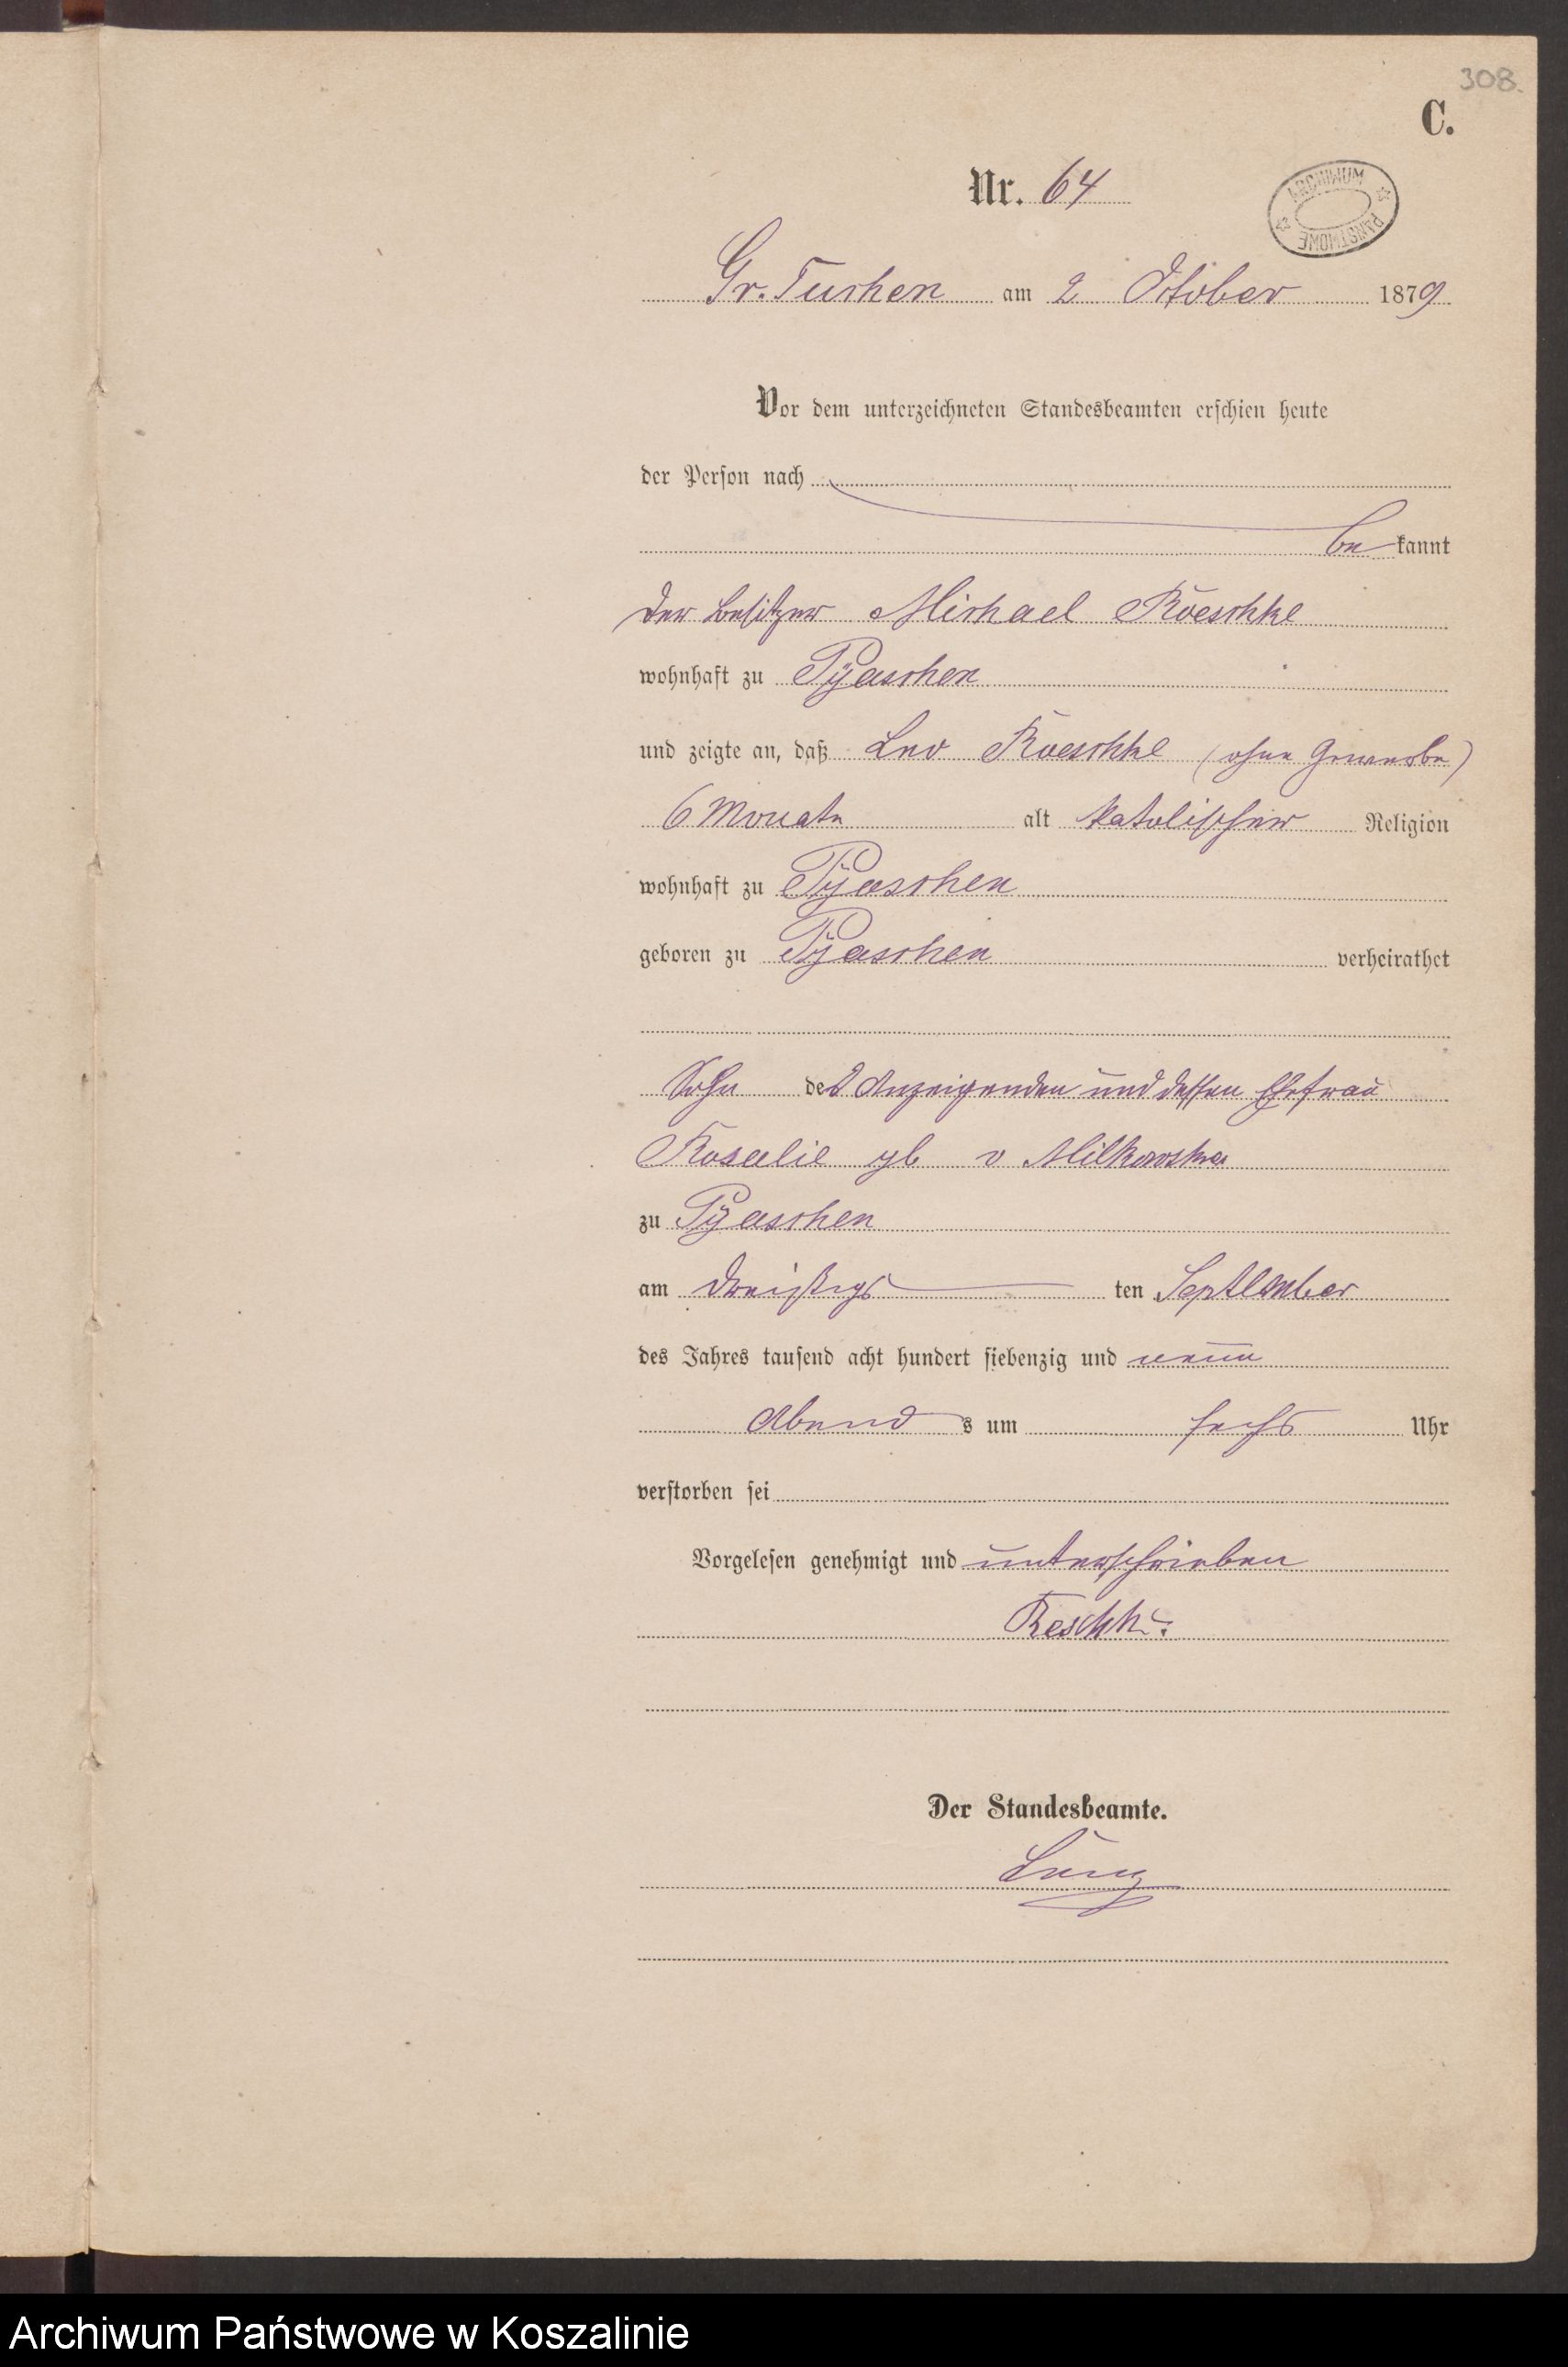 308.
C.
Nr. 64
ARCHIWUM PAŃSTWOWE
Gr. Tuchen am 2 October 1879
Vor dem unterzeichneten Standesbeamten erschien heute
der Person nach
be kannt
der Besitzer Michael Roeschke
wohnhaft zu Pÿaschen
und zeigte an, daß Leo Roeschke (ohne Gewerbe)
6 Monate alt katolischer Religion
wohnhaft zu Pÿaschen
geboren zu Pÿaschen verheirathet
Sohn des Anzeigenden und dessen Ehefrau
Rosalie gb v Milkowska
zu Pÿaschen
am dreißigs ten September
des Jahres tausend acht hundert siebenzig und neun
Abend s um sechs Uhr
verstorben sei
Vorgelesen genehmigt und unterschrieben
Reschke
Der Standesbeamte.
Archiwum Państwowe w Koszalinie